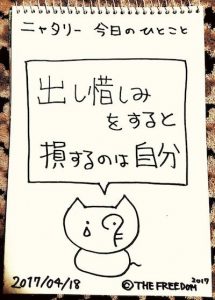 ニャタリー 今日のひとこと
出し惜しみ
をすると
損するのは自分
2017/04/18
©THE FREEDOM 2017